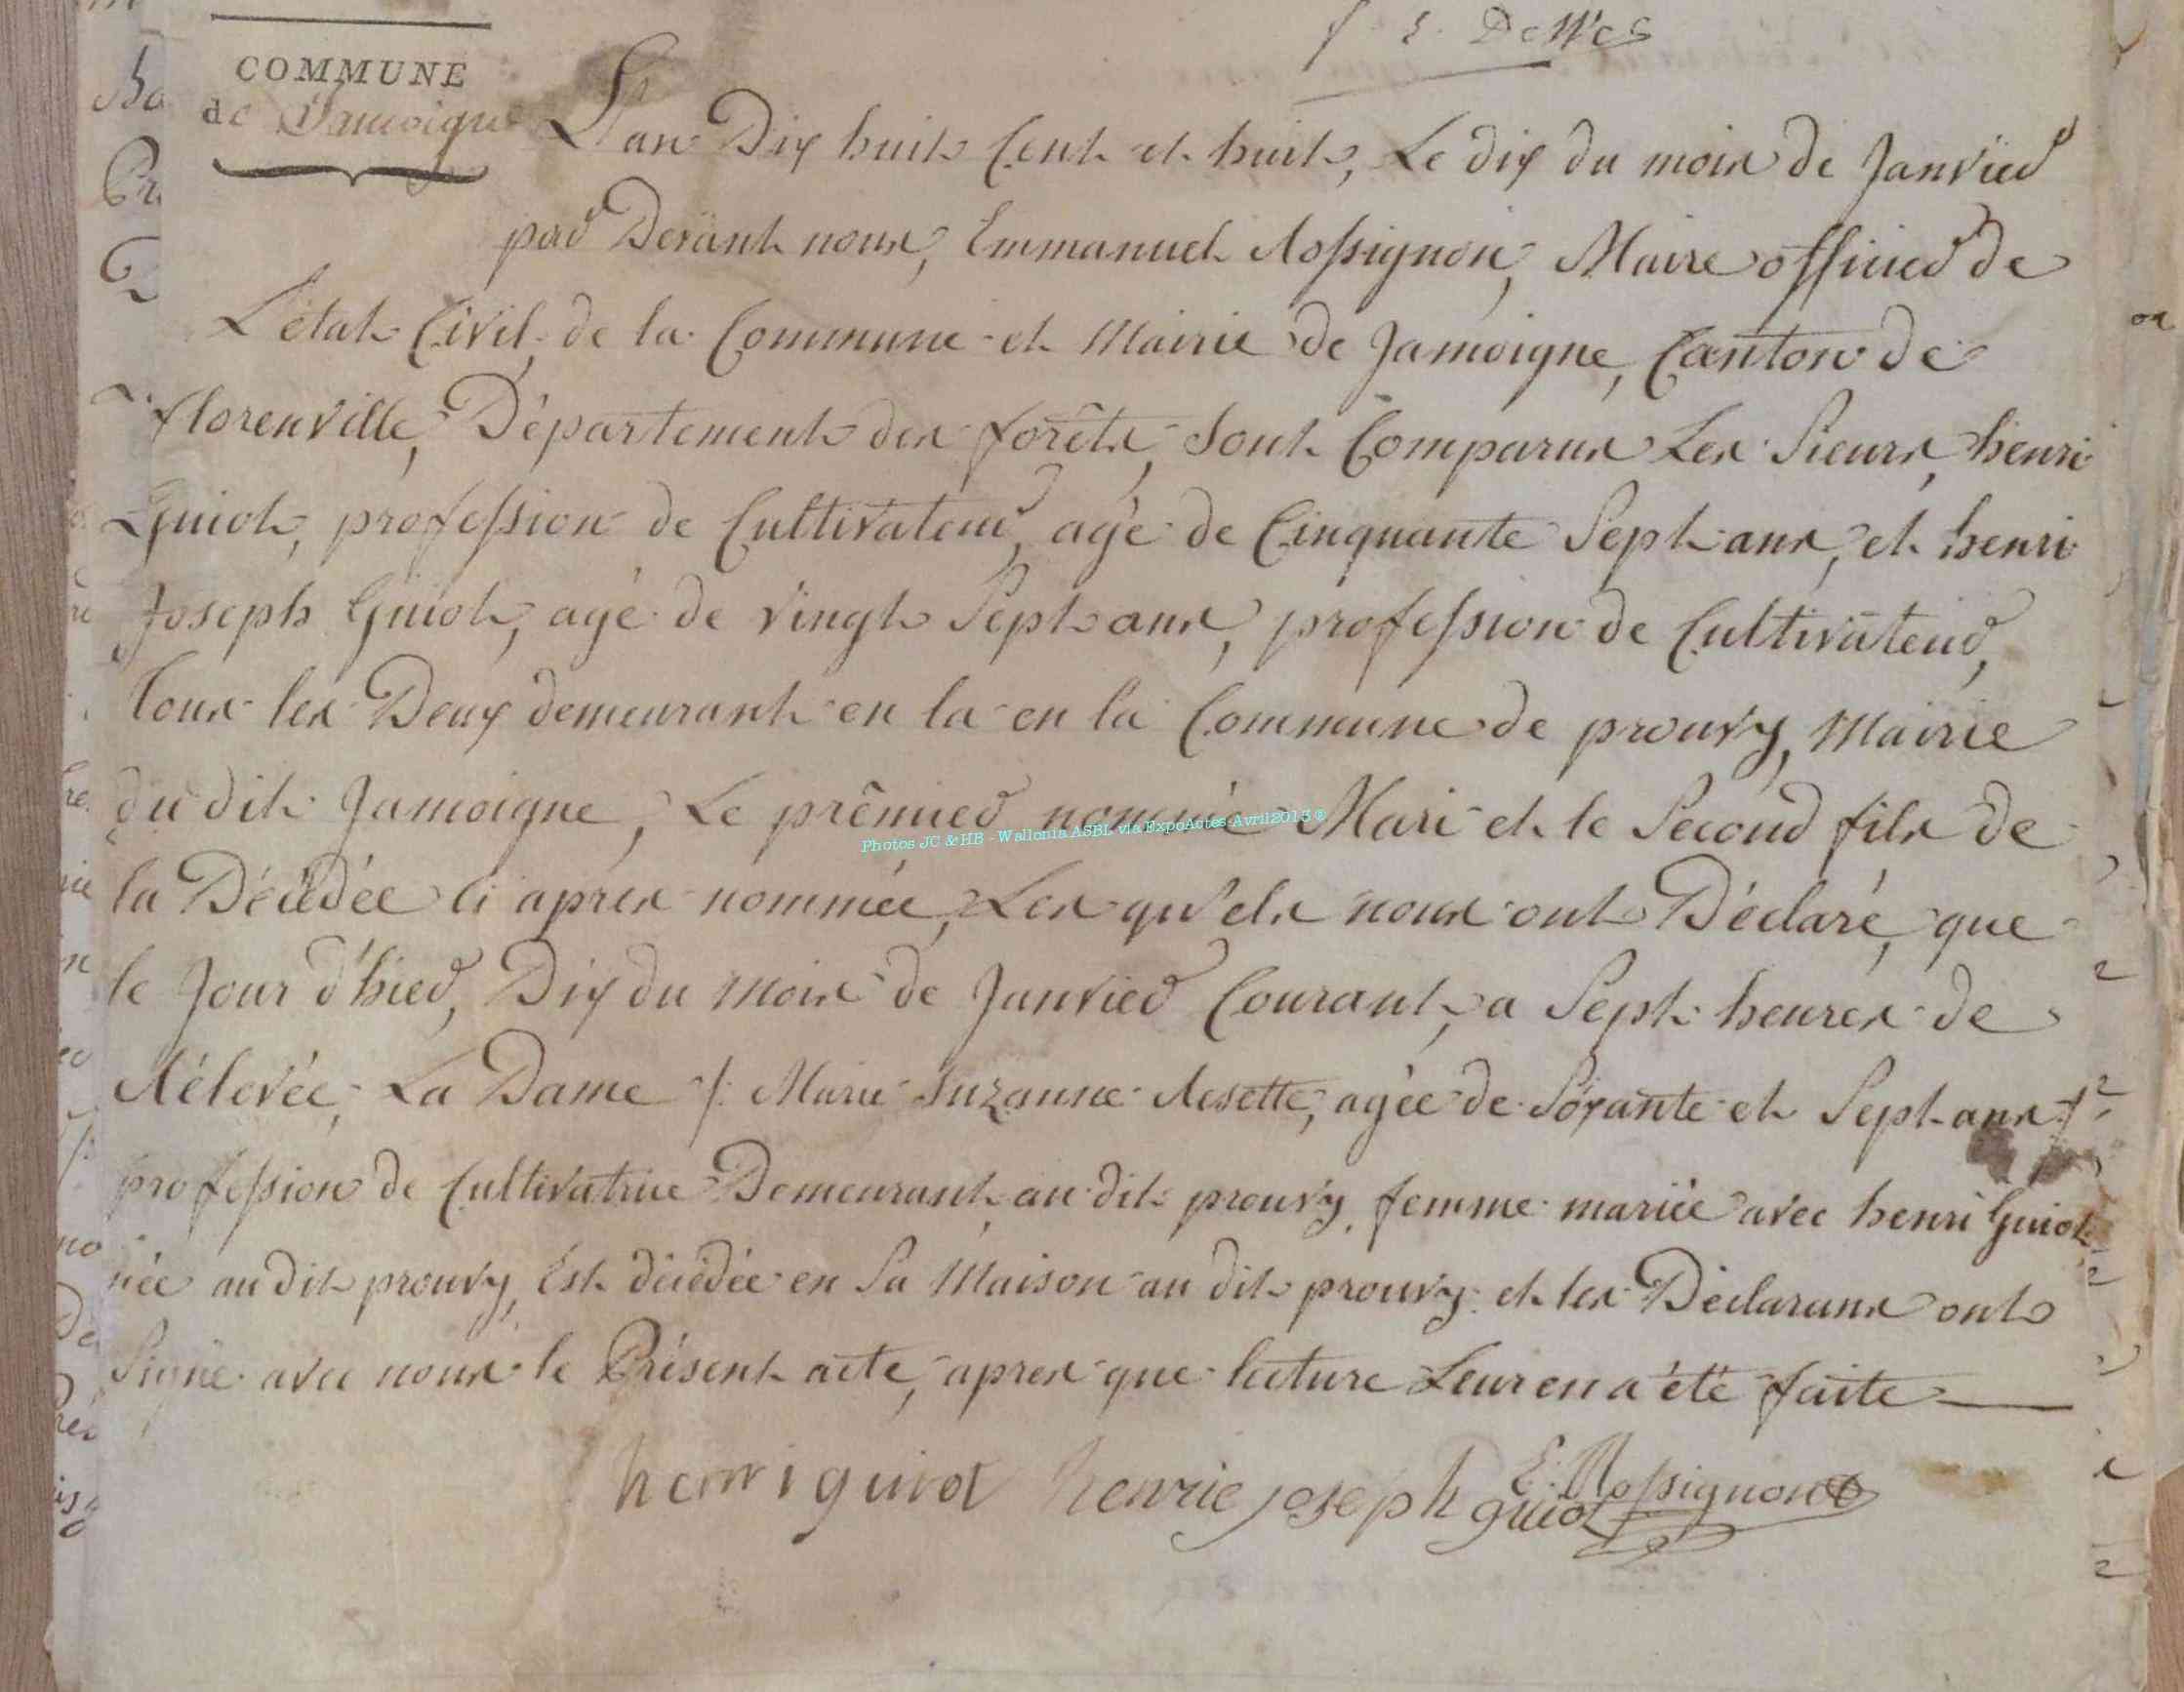 COMMUNE
de Jamoigne
L'an Dix huit Cent et huit, Le dix du mois de Janvier
par Devant nous, Emmanuel Rossignon, Maire officier de
L'état Civil, de la Commune et Mairie de Jamoigne, Canton de
florenville, Département des forêts, Sont Comparus Les Sieurs, henri
Guiot, profession de Cultivateur, agé de Cinquante Sept ans, et henri
Joseph Guiot, agé de vingt Sept ans, profession de Cultivateur,
tous les Deux demeurant en la en la Commune de prouvy, Mairie
du dit Jamoigne, Le prêmier nommée Mari et le Second fils de
la Décédée ci apres nommée, Les qu'els nous ont Déclaré, que
le Jour d'hier, Dix du mois de Janvier Courant, a Sept heures de
Rélevée, La Dame /: Marie Suzanne Resette, agée de Soixante et Sept ans
profession de Cultivatrice Demeurant au dit prouvy, femme mariée avec henri Guiot
née au dit prouvy, Est décédée en Sa Maison au dit prouvy. et les Déclarans ont
Signé avec nous le Présent acte, apres que lecture Leur en a été faite
henri guiot henrie joseph guiot E. Rossignon
Photos JC & HB - Wallonia ASBL via ExpoActes-Avril2013 ®